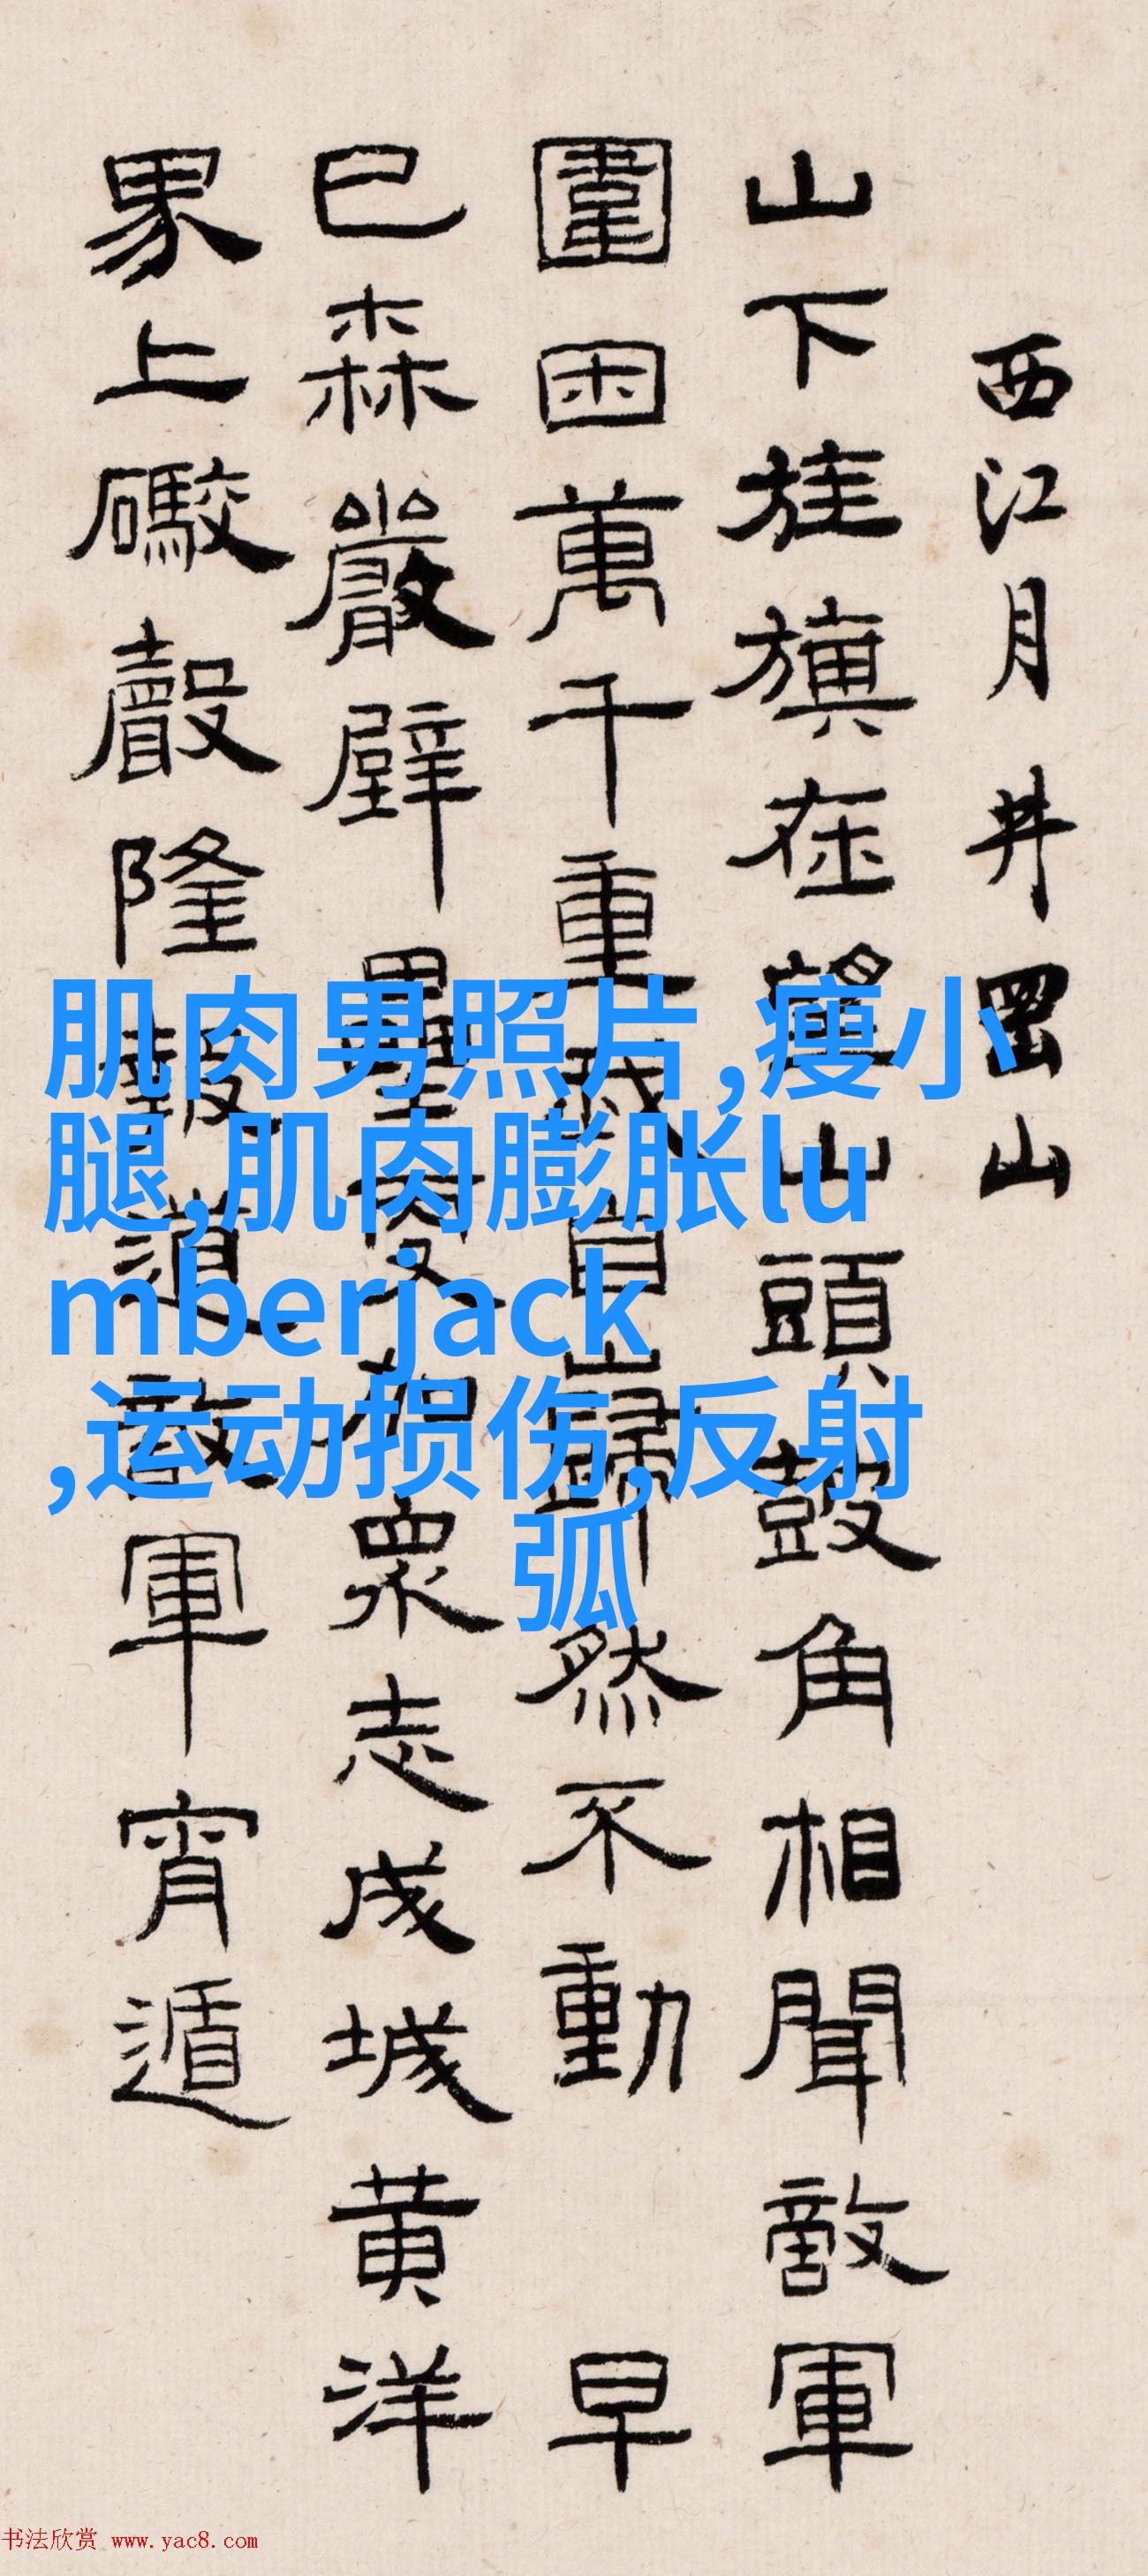 西江月 井岡山
山下旌旗在望山頭鼓角相聞敵軍
圍困萬千重我自巋然不動 早
已森嚴壁壘更加眾志成城黃洋
界上礮聲隆報道敵軍宵遁
肌肉男照片,瘦小
腿,肌肉膨胀lu
mberjack
,运动损伤,反射
弧
书法欣赏 www.yac8.com